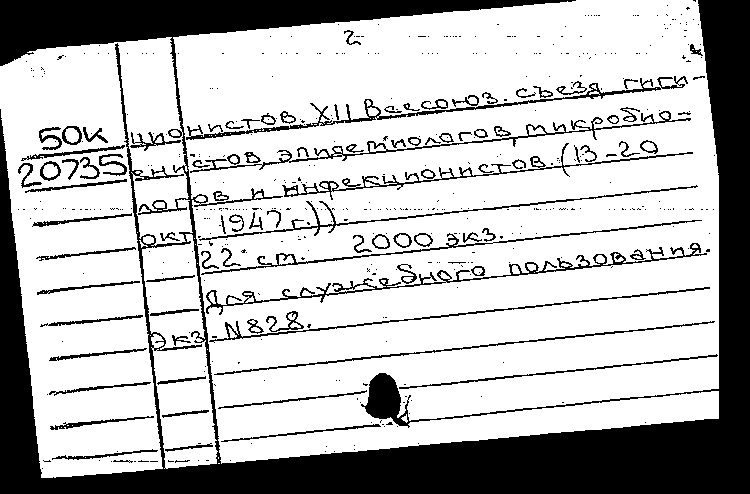 2
50К ционистов. XII Всесоюз. съезд гиги-
20735 енистов, эпидемиологов, микробио-
логов и инфекционистов. (13-20
окт. 1947 г.)).
22 ст. 2000 экз.
Для служебного пользования.
Экз. N828.